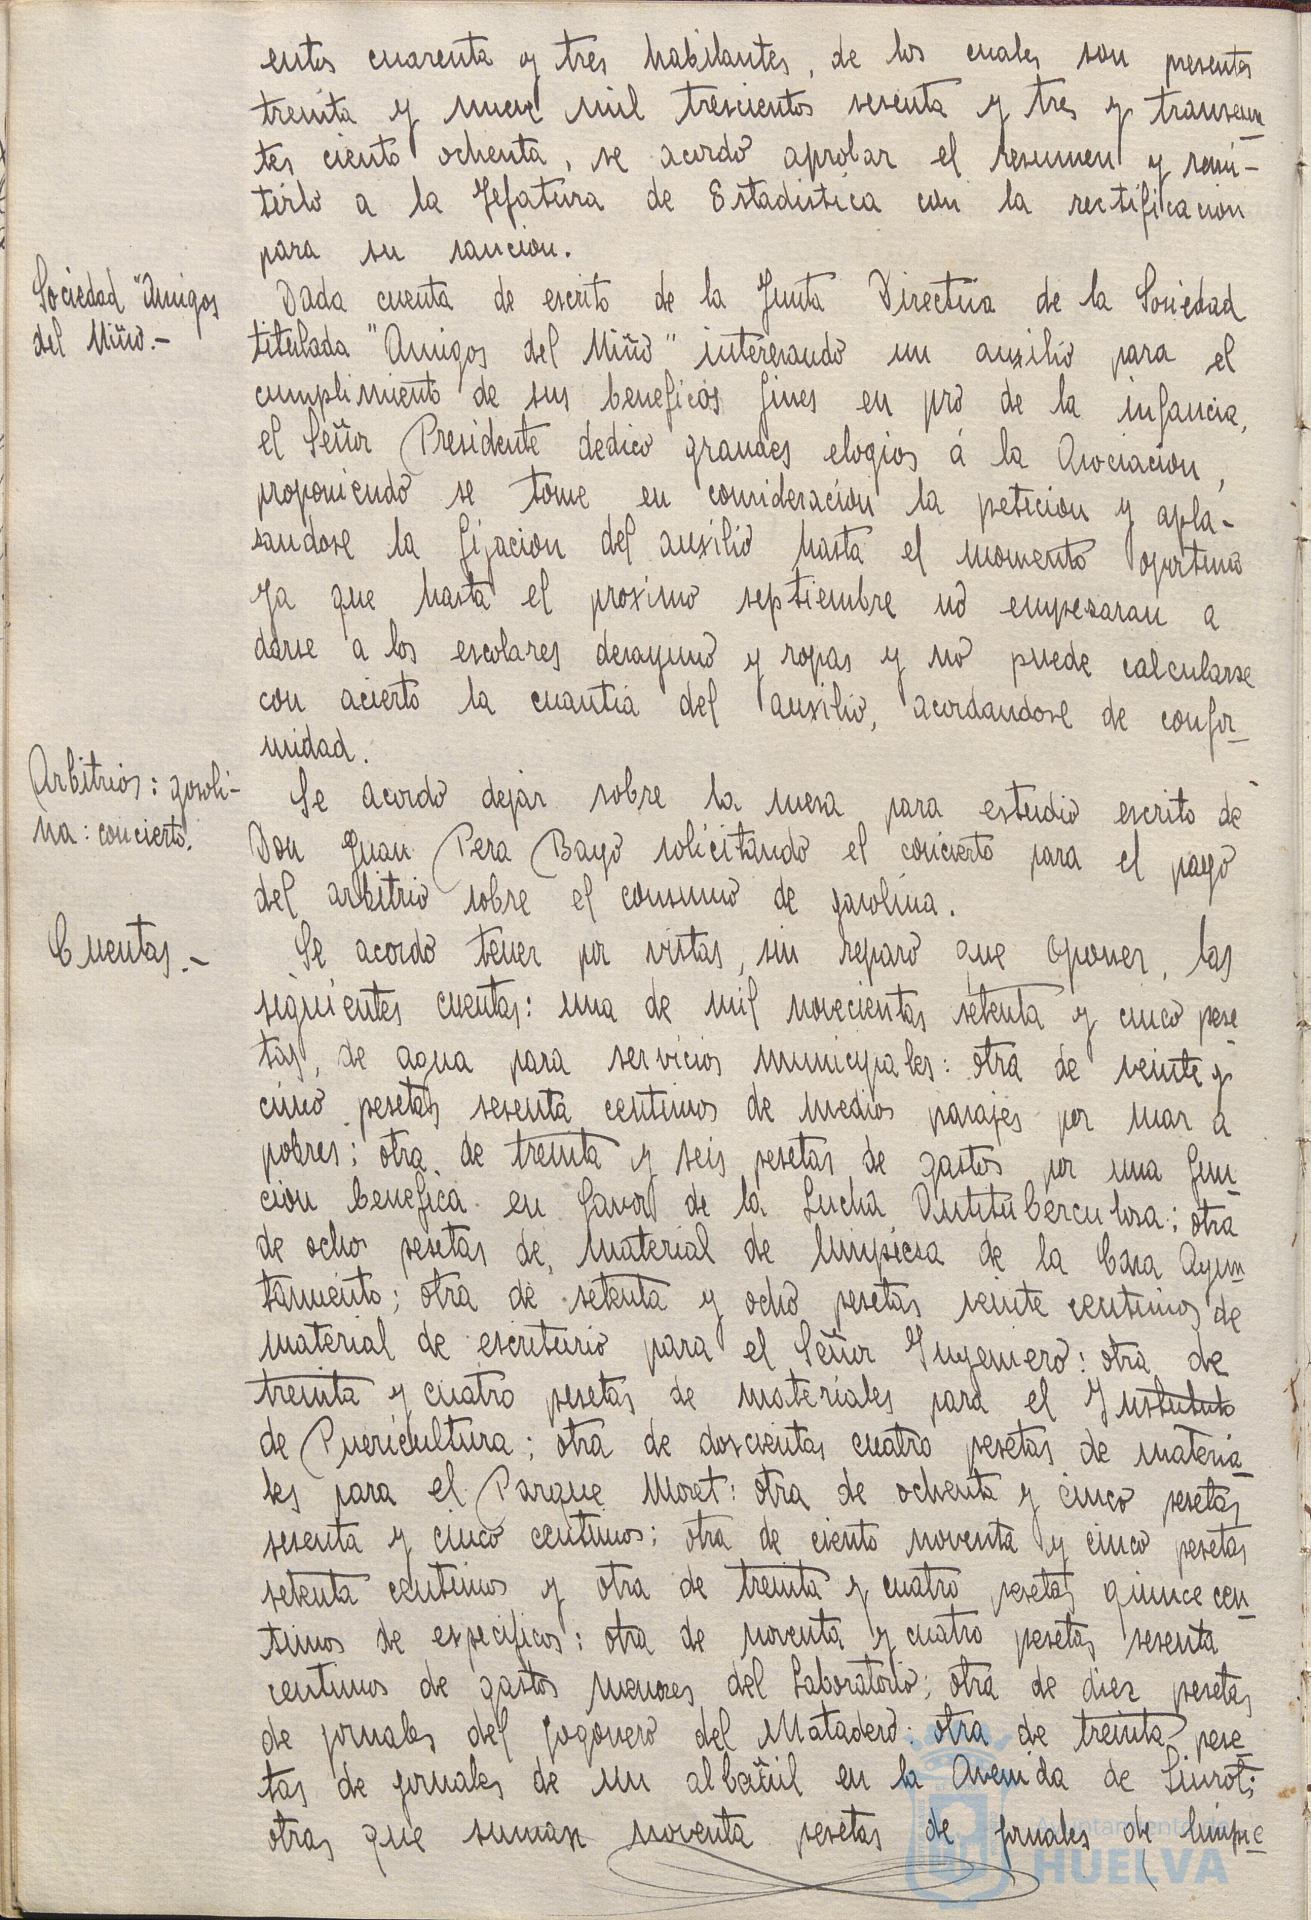 entos cuarenta y tres habitantes, de los cuales son presentes
treinta y nueve mil trescientos sesenta y tres y transeun-
tes ciento ochenta, se acordó aprobar el resumen y remi-
tirlo a la Jefatura de Estadistica con la rectificacion
para su sancion.
Sociedad "Amigos
del Niño.-
Dada cuenta de escrito de la Junta Directiva de la Sociedad
titulada "Amigos del Niño" interesando un auxilio para el
cumplimiento de sus beneficos fines en pro de la infancia,
el Señor Presidente dedicó grandes elogios á la Asociacion,
proponiendo se tome en consideracion la peticion y apla-
sandose la fijacion del auxilio hasta el momento oportuno
ya que hasta el proximo septiembre no empezaran a
darse a los escolares desayuno y ropas y no puede calcularse
con acierto la cuantia del auxilio, acordandose de confor-
midad.
Arbitrios: gasoli-
na: concierto.
Se acordó dejar sobre la mesa para estudio escrito de
Don Juan Pera Bayo solicitando el concierto para el pago
del arbitrio sobre el consumo de gasolina.
Cuentas.-
Se acordó tener por vistas, sin reparo que oponer, las
siguientes cuentas: una de mil novecientas setenta y cinco pese
tas, de agua para servicios municipales: otra de veinte y
cinco pesetas sesenta centimos de medios pasajes por mar a
pobres; otra de treinta y seis pesetas de gastos por una fun-
cion benefica en favor de la Lucha Antituberculosa; otra
de ocho pesetas de material de limpieza de la Casa Ayun-
tamiento; otra de setenta y ocho pesetas veinte centimos de
material de escriturio para el Señor Ingeniero: otra de
treinta y cuatro pesetas de materiales para el Instituto
de Puericultura; otra de doscientas cuatro pesetas de materia-
les para el Parque Moret: otra de ochenta y cinco pesetas
sesenta y cinco centimos: otra de ciento noventa y cinco pesetas
setenta centimos y otra de treinta y cuatro pesetas quince cen-
timos de especificos: otra de noventa y cuatro pesetas sesenta
centimos de gastos menores del Laboratorio; otra de diez pesetas
de jornales del fogonero del Matadero: otra de treinta pese-
tas de jornales de un albañil en la Avenida de Siurot;
otras que suman noventa pesetas de jornales de limpie
Ayuntamiento de
HUELVA